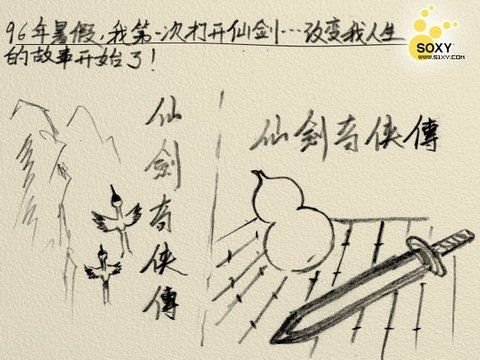 96年暑假，我第一次打开仙剑…改变我人生
的故事开始了！
SOXY
www.51XY.COM
仙劍奇俠傳
仙劍奇俠傳